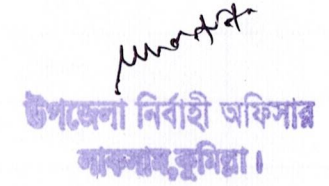 উপজেলা নির্বাহী অফিসার
লাকসাম,কুমিল্লা।